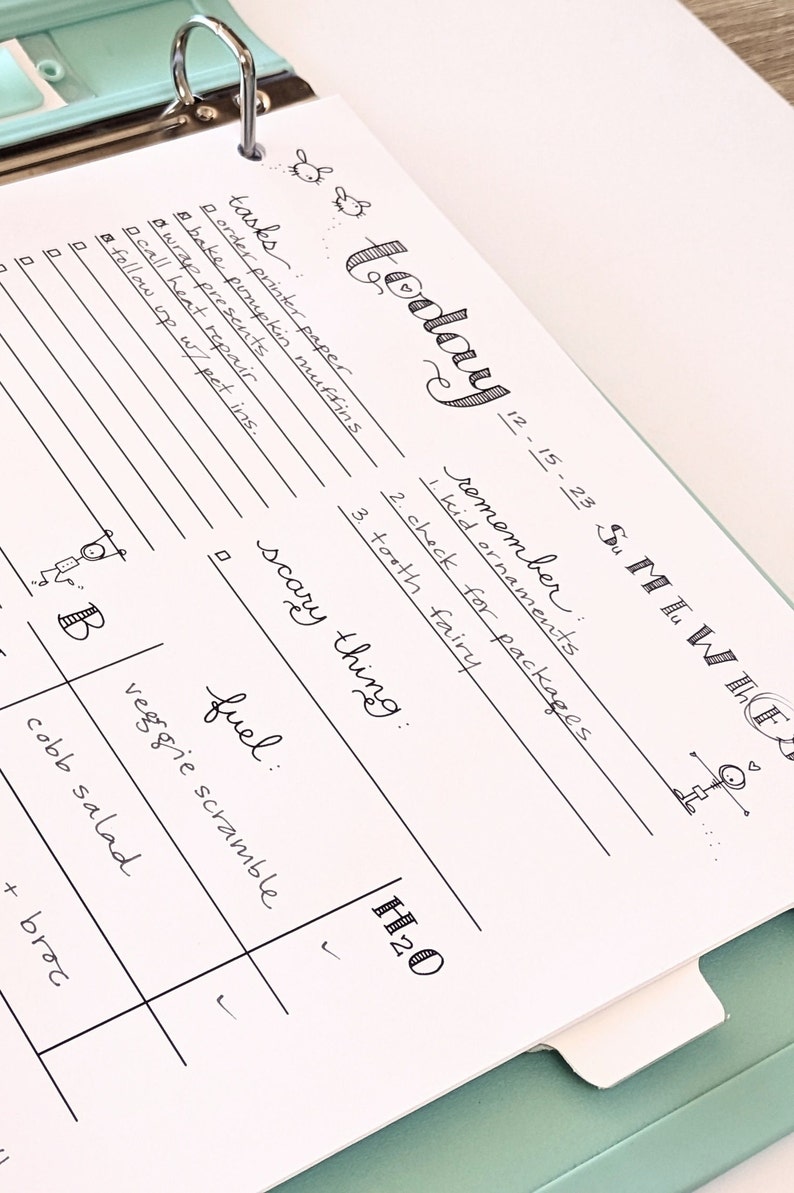 today
12 - 15 - 23
Su M Tu W Th F
tasks:
order printer paper
bake pumpkin muffins
wrap presents
call heat repair
follow up w/ pet ins.
remember:
1. kid ornaments
2. check for packages
3. tooth fairy
scary thing:
fuel:
H2O
B
veggie scramble
cobb salad
+ broc